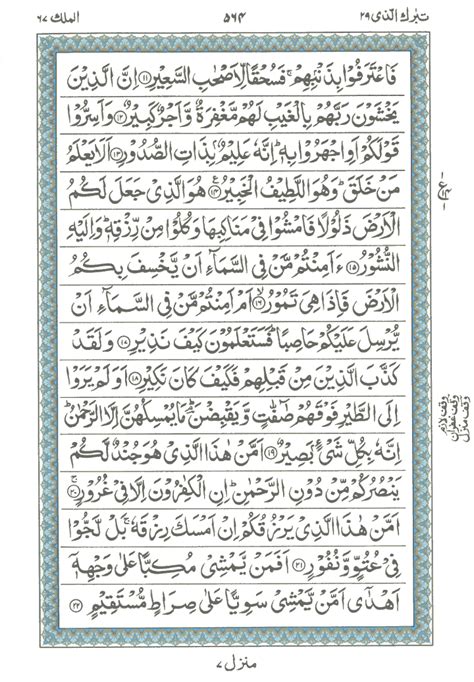 تبرك الذى ٢٩ ٥٦٤ الملك ٦٧
فَاعْتَرَفُوْا بِذَنْۢبِهِمْ ۚ فَسُحْقًا لِّاَصْحٰبِ السَّعِيْرِ ﴿۱۱﴾ اِنَّ الَّذِيْنَ
يَخْشَوْنَ رَبَّهُمْ بِالْغَيْبِ لَهُمْ مَّغْفِرَةٌ وَّاَجْرٌ كَبِيْرٌ ﴿۱۲﴾ وَاَسِرُّوْا
قَوْلَكُمْ اَوِ اجْهَرُوْا بِهٖ ؕ اِنَّهٗ عَلِيْمٌۢ بِذَاتِ الصُّدُوْرِ ﴿۱۳﴾ اَلَا يَعْلَمُ
مَنْ خَلَقَ ؕ وَهُوَ اللَّطِيْفُ الْخَبِيْرُ ﴿۱۴﴾ هُوَ الَّذِيْ جَعَلَ لَكُمُ
الْاَرْضَ ذَلُوْلًا فَامْشُوْا فِيْ مَنَاكِبِهَا وَكُلُوْا مِنْ رِّزْقِهٖ ؕ وَاِلَيْهِ
النُّشُوْرُ ﴿۱۵﴾ ءَاَمِنْتُمْ مَّنْ فِي السَّمَآءِ اَنْ يَّخْسِفَ بِكُمُ
الْاَرْضَ فَاِذَا هِيَ تَمُوْرُ ﴿۱۶﴾ اَمْ اَمِنْتُمْ مَّنْ فِي السَّمَآءِ اَنْ
يُّرْسِلَ عَلَيْكُمْ حَاصِبًا ؕ فَسَتَعْلَمُوْنَ كَيْفَ نَذِيْرِ ﴿۱۷﴾ وَلَقَدْ
كَذَّبَ الَّذِيْنَ مِنْ قَبْلِهِمْ فَكَيْفَ كَانَ نَكِيْرِ ﴿۱۸﴾ اَوَلَمْ يَرَوْا
اِلَى الطَّيْرِ فَوْقَهُمْ صٰٓفّٰتٍ وَّيَقْبِضْنَ ؔۘ مَا يُمْسِكُهُنَّ اِلَّا الرَّحْمٰنُ ؕ
اِنَّهٗ بِكُلِّ شَيْءٍۢ بَصِيْرٌ ﴿۱۹﴾ اَمَّنْ هٰذَا الَّذِيْ هُوَ جُنْدٌ لَّكُمْ
يَنْصُرُكُمْ مِّنْ دُوْنِ الرَّحْمٰنِ ؕ اِنِ الْكٰفِرُوْنَ اِلَّا فِيْ غُرُوْرٍ ﴿۲۰﴾
اَمَّنْ هٰذَا الَّذِيْ يَرْزُقُكُمْ اِنْ اَمْسَكَ رِزْقَهٗ ۚ بَلْ لَّجُّوْا
فِيْ عُتُوٍّ وَّنُفُوْرٍ ﴿۲۱﴾ اَفَمَنْ يَّمْشِيْ مُكِبًّا عَلٰى وَجْهِهٖٓ
اَهْدٰٓى اَمَّنْ يَّمْشِيْ سَوِيًّا عَلٰى صِرَاطٍ مُّسْتَقِيْمٍ ﴿۲۲﴾
وقف لازم
وقف غفران
وقف منزل
منزل ٧